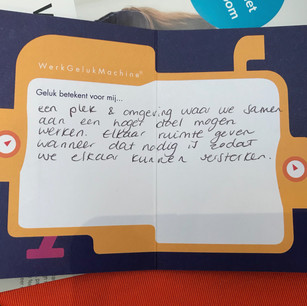 WerkGelukMachine®
Geluk betekent voor mij...
een plek & omgeving waar we samen
aan een hoger doel mogen
werken. Elkaar ruimte geven
wanneer dat nodig is zodat
we elkaar kunnen versterken.